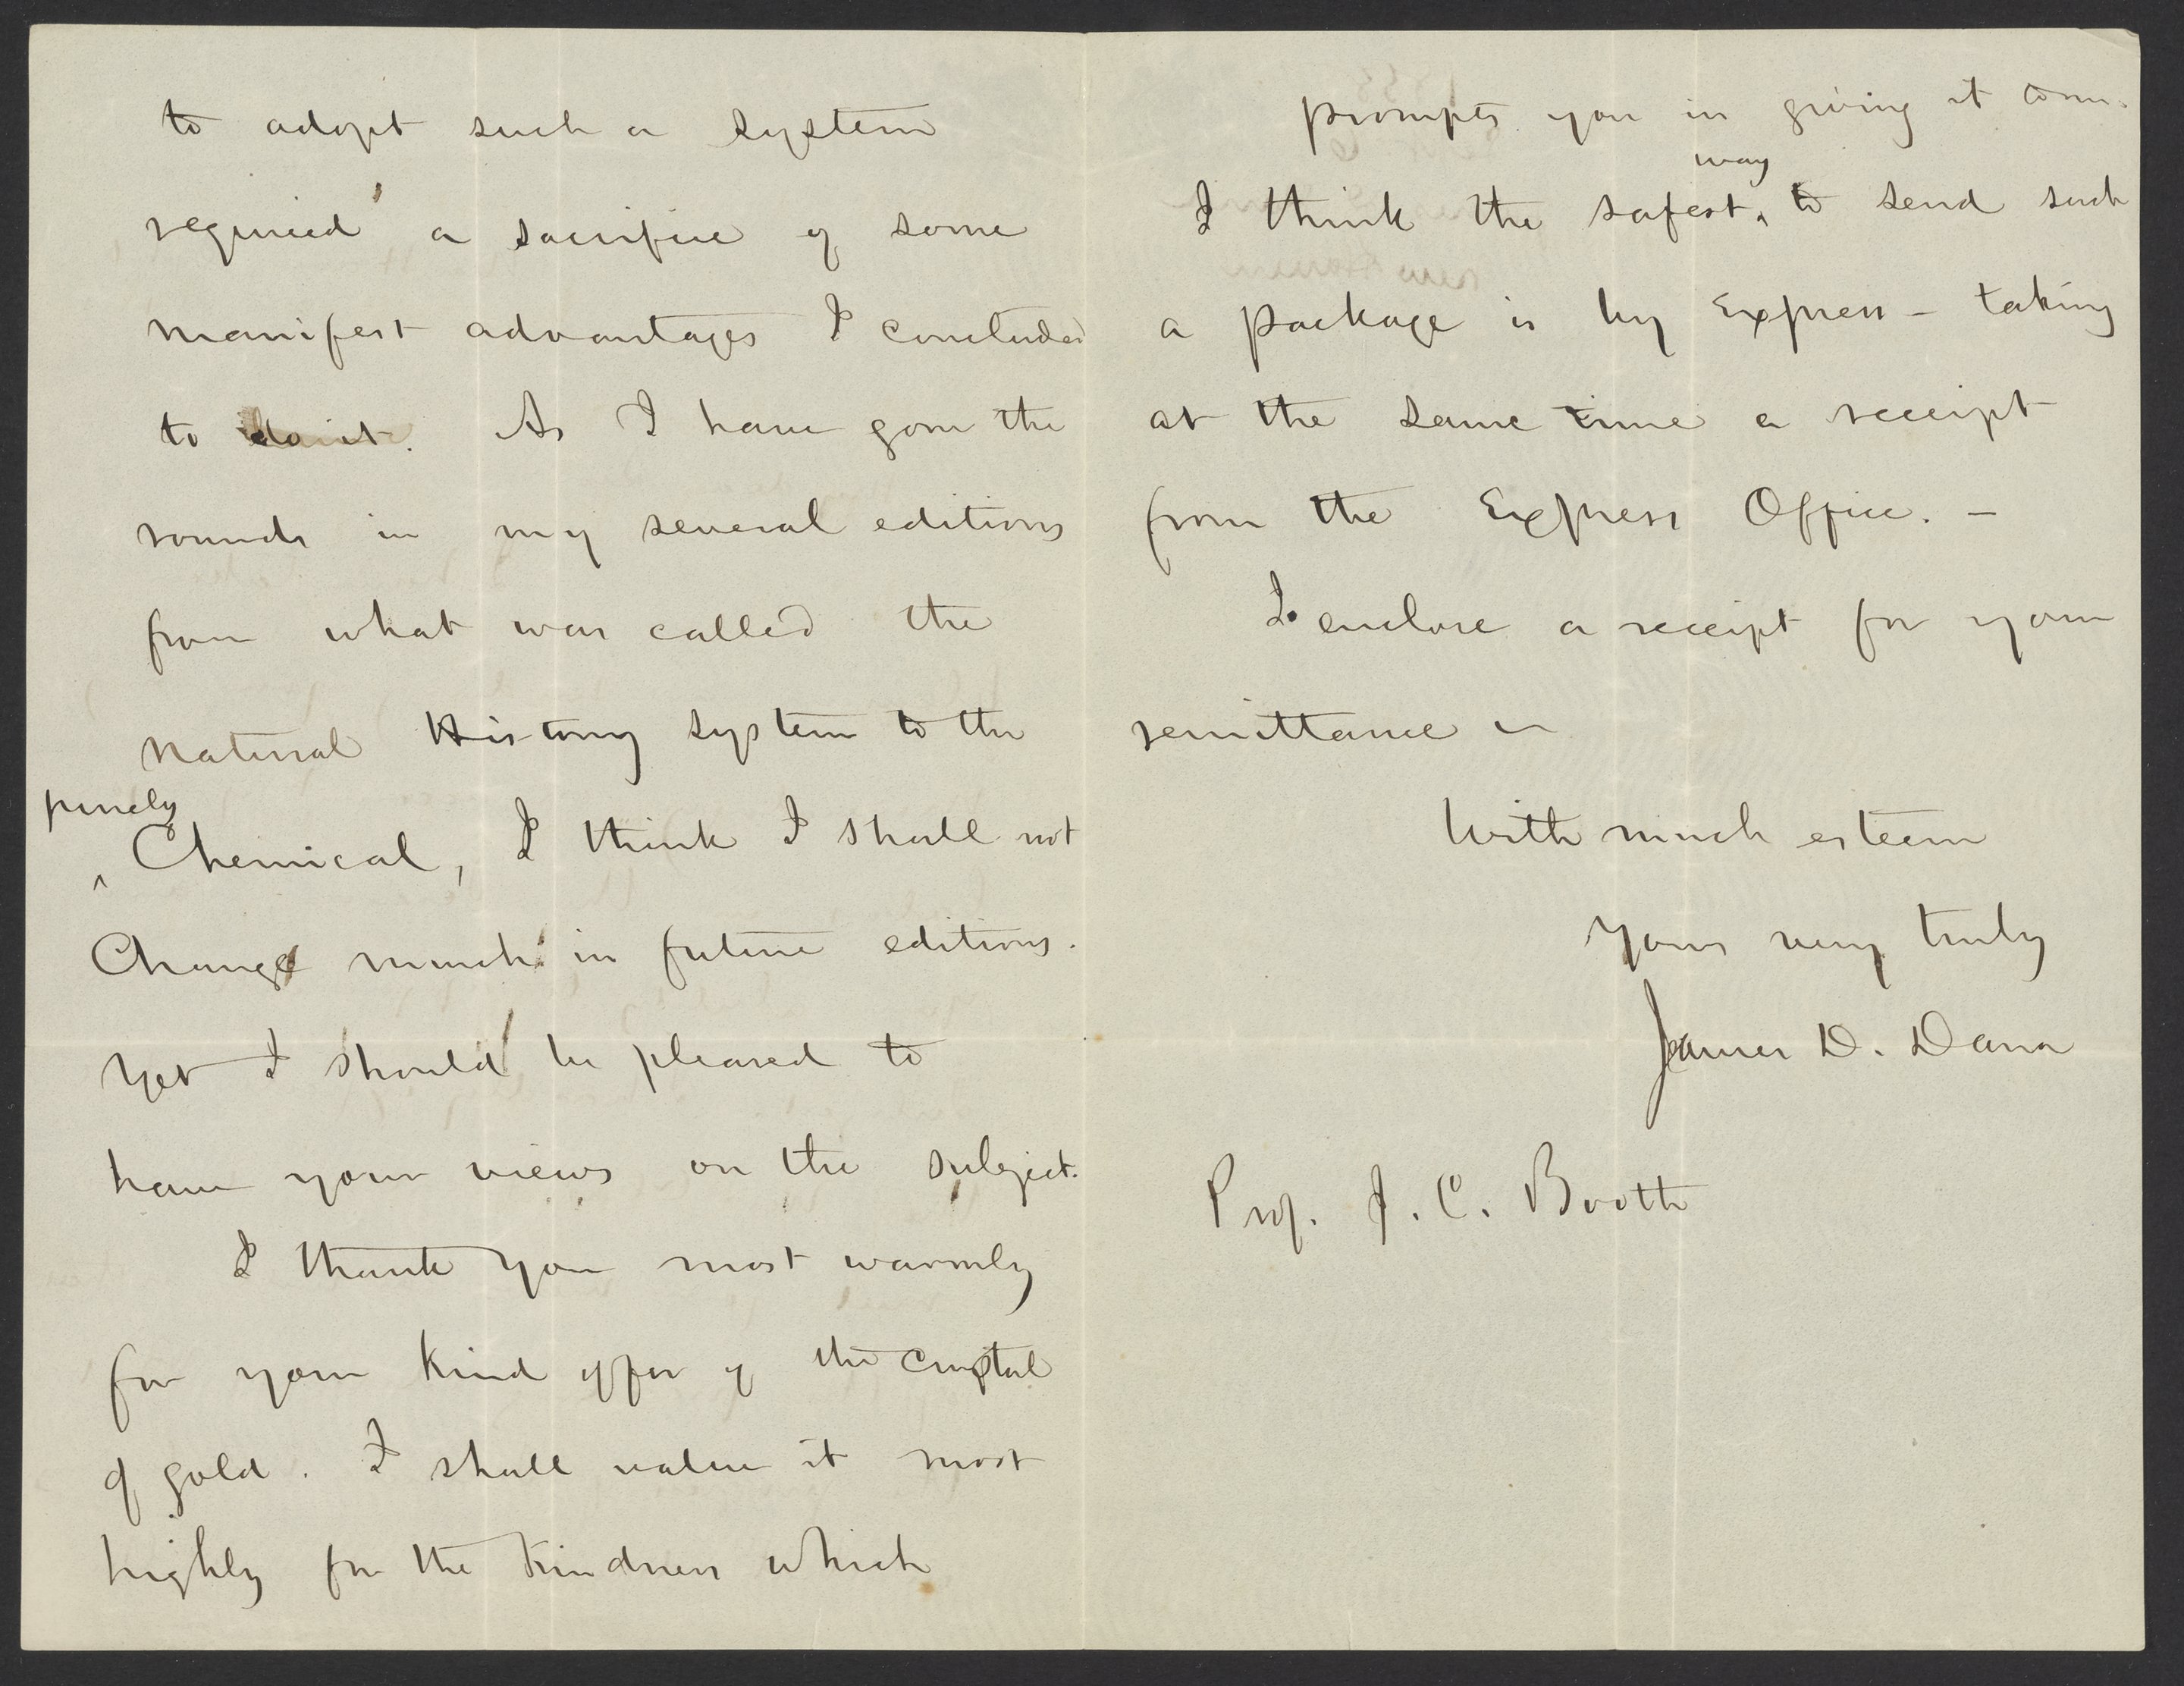 to adopt such a system
required a sacrifice of some
manifest advantages I concluded
to do it. As I have gone the
rounds in my several editions
from what was called the
natural History system to the
purely
^ Chemical, I think I shall not
Change much in future editions.
Yet I should be pleased to
have your views on the subject.
I thank you most warmly
for your kind offer of the crystal
of gold. I shall value it most
highly for the kindness which
prompts you in giving it
way
I think the safest ^ to send such
a package is by Express – taking
at the same time a receipt
from the Express Office. –
I enclose a receipt for your
remittance
With much esteem
Yours very truly
James D. Dana
Prof. J. C. Booth